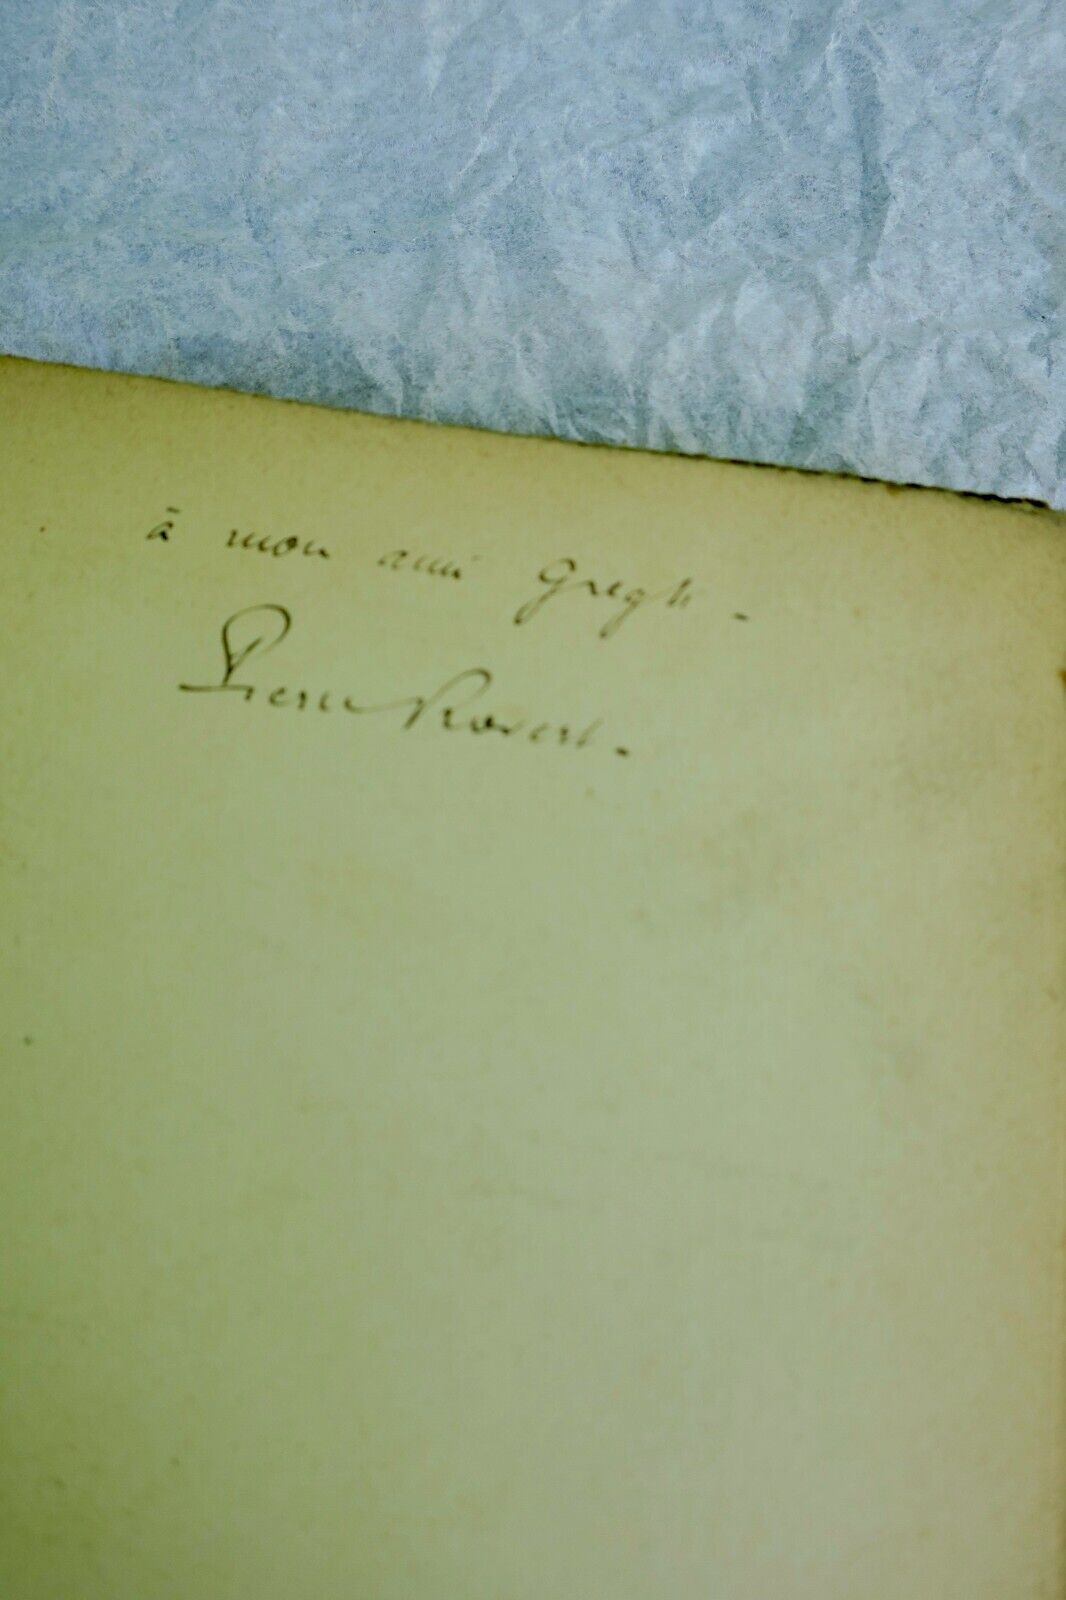 à mon ami Gregh.
Pierre Rovert.